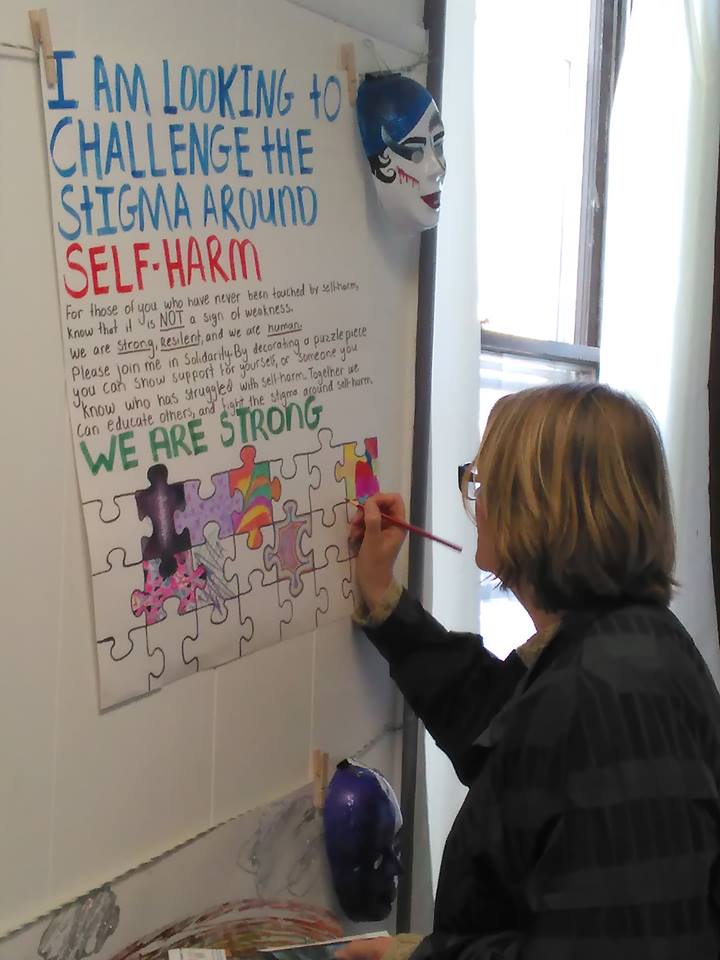 I AM LOOKING tO
CHALLENGE tHE
StIGMA AROUND
SELF-HARM
For those of you who have never been touched by self-harm,
know that it is NOT a sign of weakness.
We are strong, Resilent, and we are human.
Please join me in Solidarity. By decorating a puzzle piece
you can show support for yourself, or someone you
know who has struggled with self-harm. Together we
can educate others, and fight the stigma around self-harm.
WE ARE STRONG